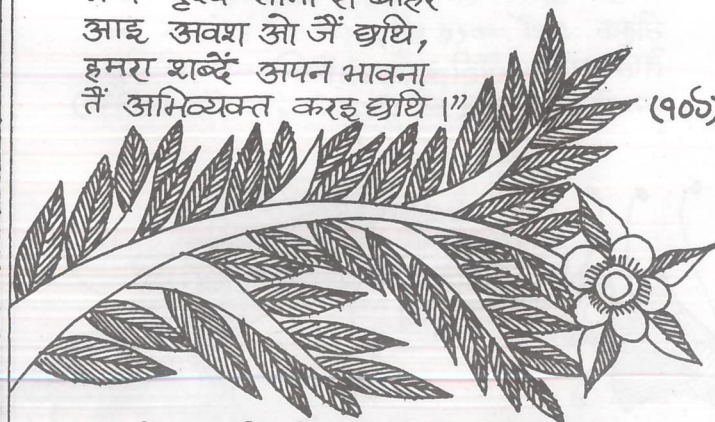 आइ अवश ओ जैं छथि,
हमरा शब्दें अपन भावना
तैं अभिव्यक्त करइ छथि ।”
(१०६)